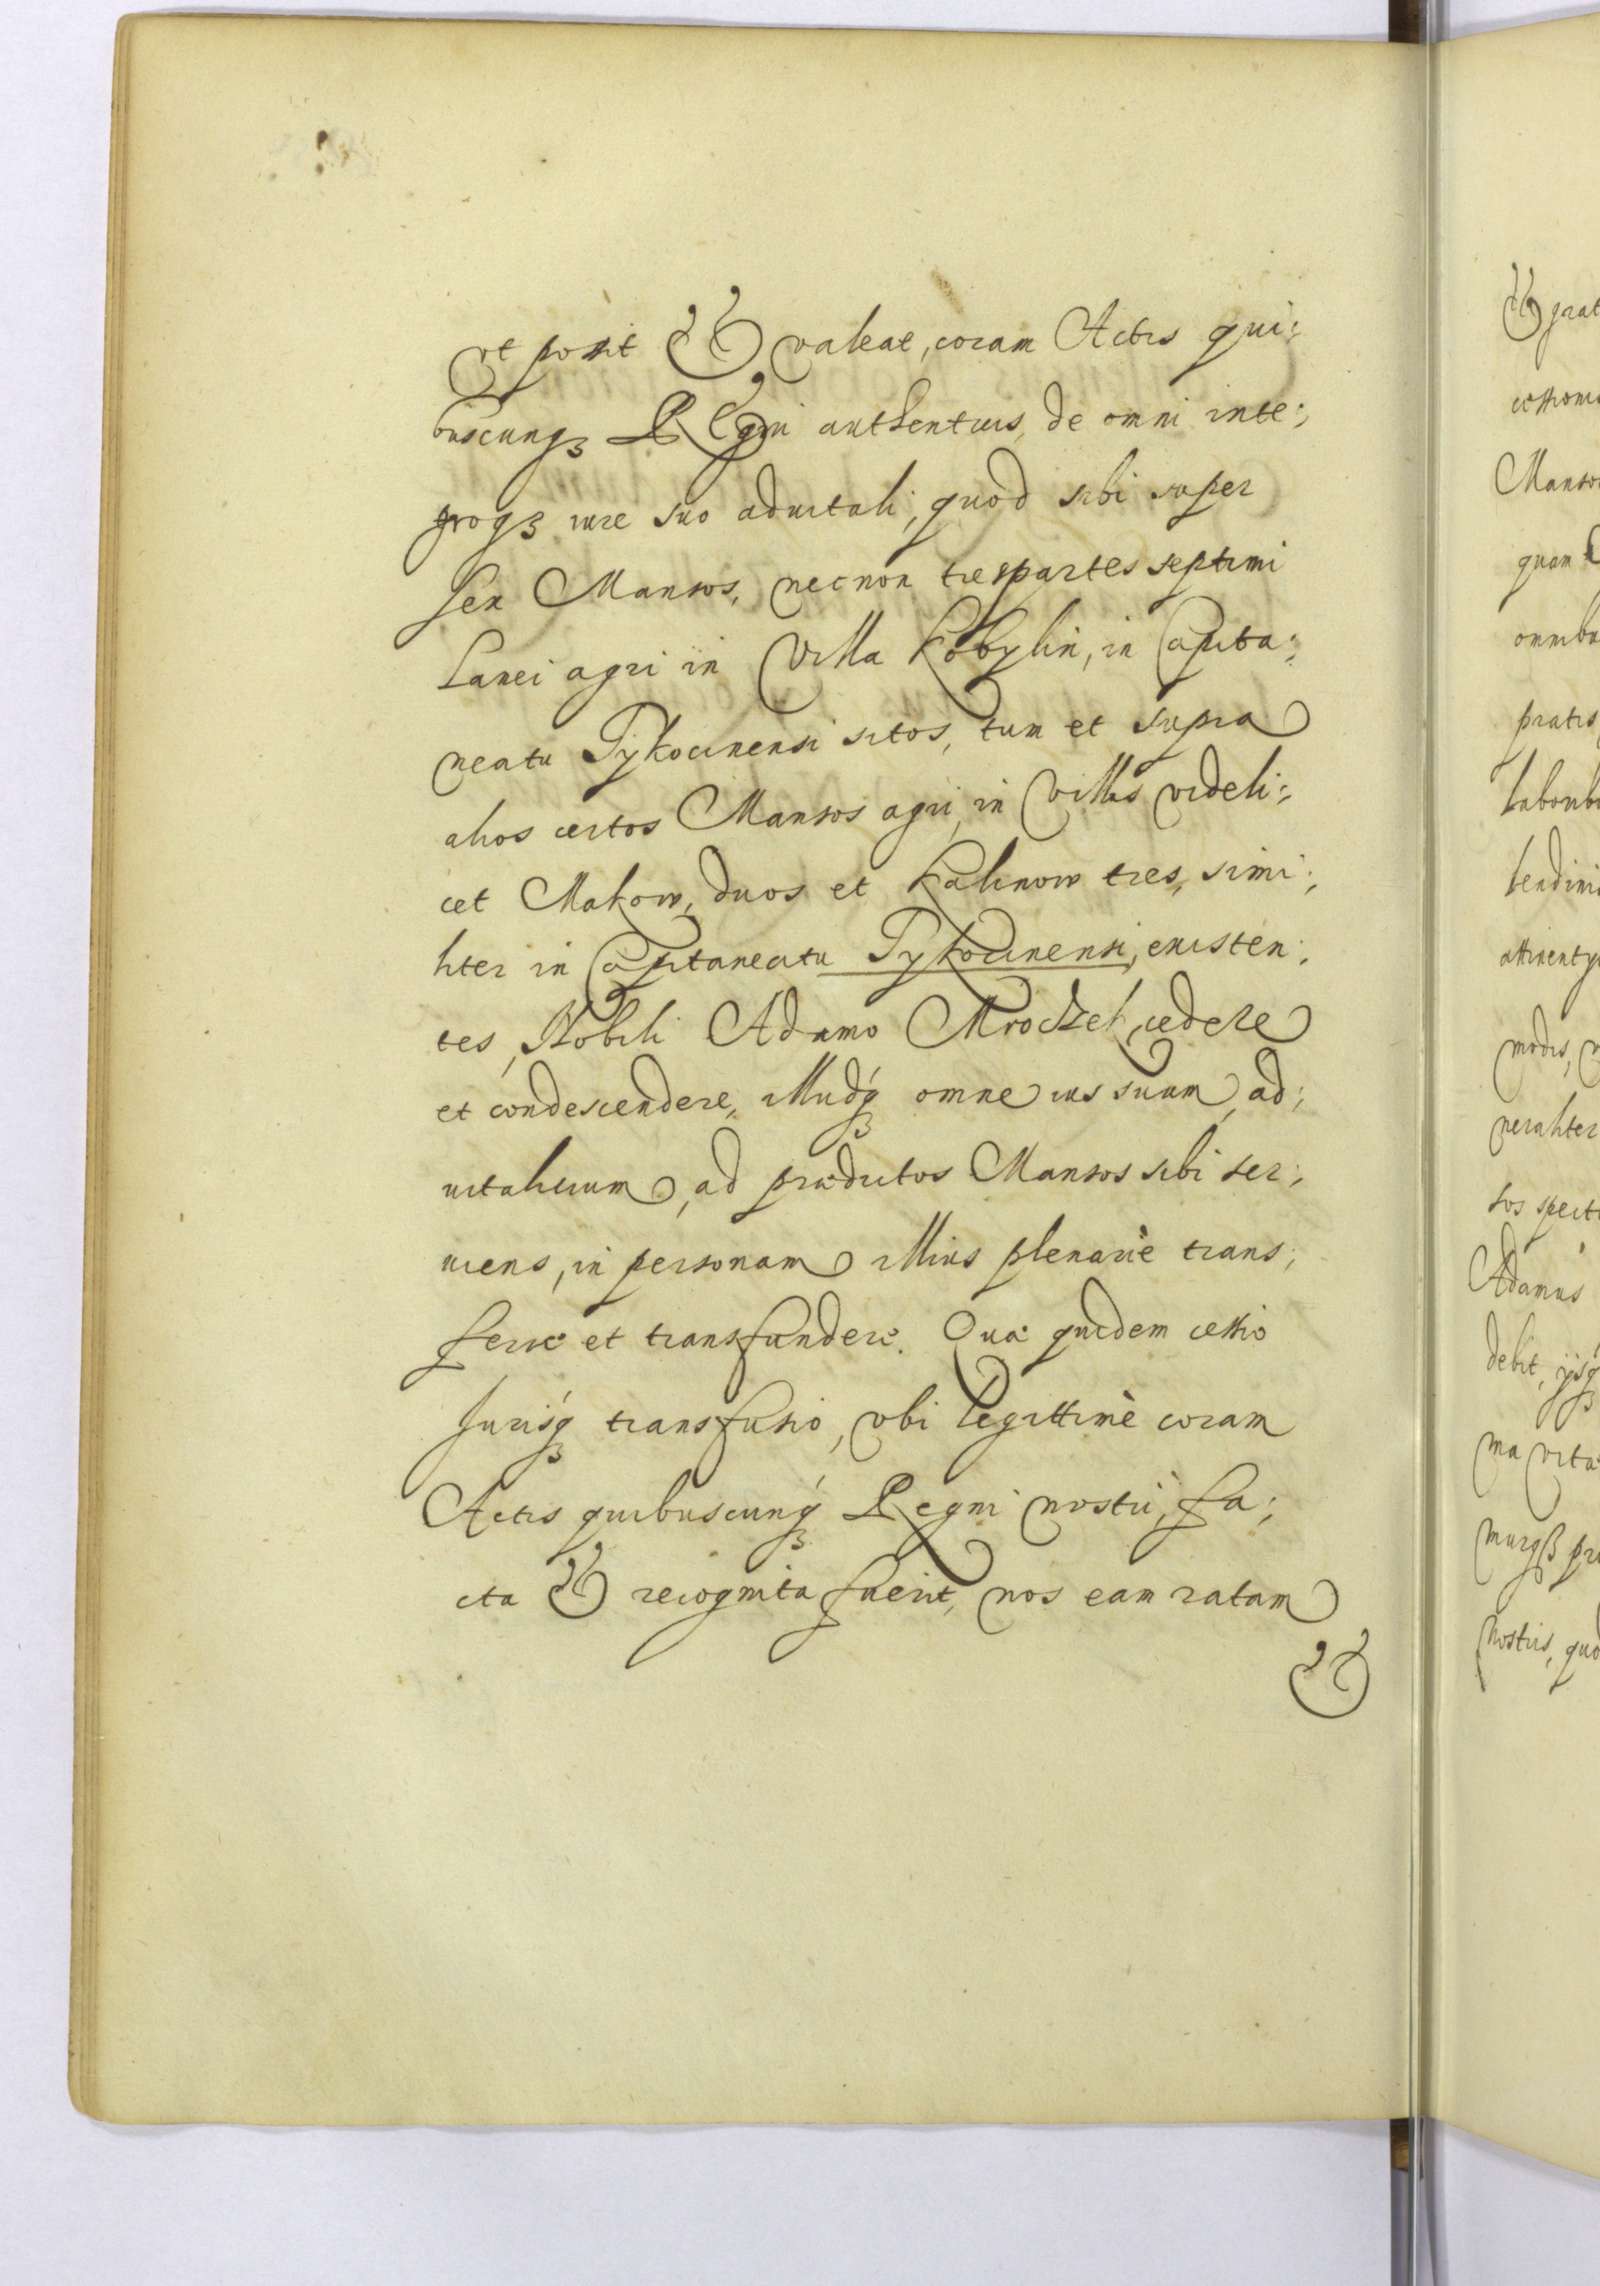 vt possit & valeat, coram Actis qui:
buscunqꝫ Regni authenticis, de omni inte:
groqꝫ iure suo aduitali, quod sibi super
sex Mansos, necnon tres partes septimi
Lanei agri in Villa Kobylin, in Capita:
neatu Tykocinensi sitos, tum et supra
alios certos Mansos agri, in Villis videli:
cet Makow, duos et Kalinow tres, simi:
liter in Capitaneatu Tykocinensi, existen:
tes, Nobili Adamo Mroczek, cedere
et condescendere, illudqꝫ omne ius suum, ad:
uitalitium, ad prædictos Mansos sibi ser:
uiens, in personam illius plenariè trans:
ferre et transfundere. Quæ quidem cessio
Jurisqꝫ transfusio, vbi legittimè coram
Actis quibuscunqꝫ Regni nostri, fa:
cta & recognita fuerit, nos eam ratam
&
& grat
cessionis
Manso
quan
omnibu
pratis
laborib
attinenty
modis,
neraliter
sos spect
Adamus
debit, ijsqꝫ
ma vita
nostris, quo